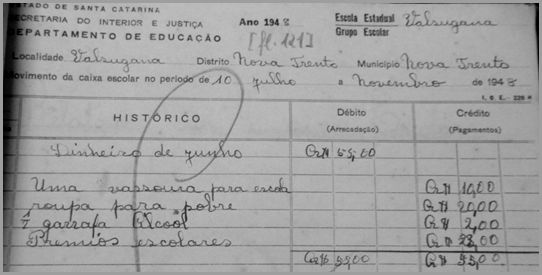 ESTADO DE SANTA CATARINA
SECRETARIA DO INTERIOR E JUSTIÇA
DEPARTAMENTO DE EDUCAÇÃO
Ano 1948
[fl. 121]
Escola Estadual Valsugana
Grupo Escolar
Localidade Valsugana Distrito Nova Trento Município Nova Trento
Movimento da caixa escolar no período de 10 julho a Novembro de 1948
HISTÓRICO
Débito
(Arrecadação)
Crédito
(Pagamentos)
Dinheiro de junho Cr$ 55,00
Uma vassoura para escola Cr$ 10,00
roupa para pobre Cr$ 20,00
1 garrafa Alcool Cr$ 2,00
Premios escolares Cr$ 23,00
Cr$ 55,00 Cr$ 55,00